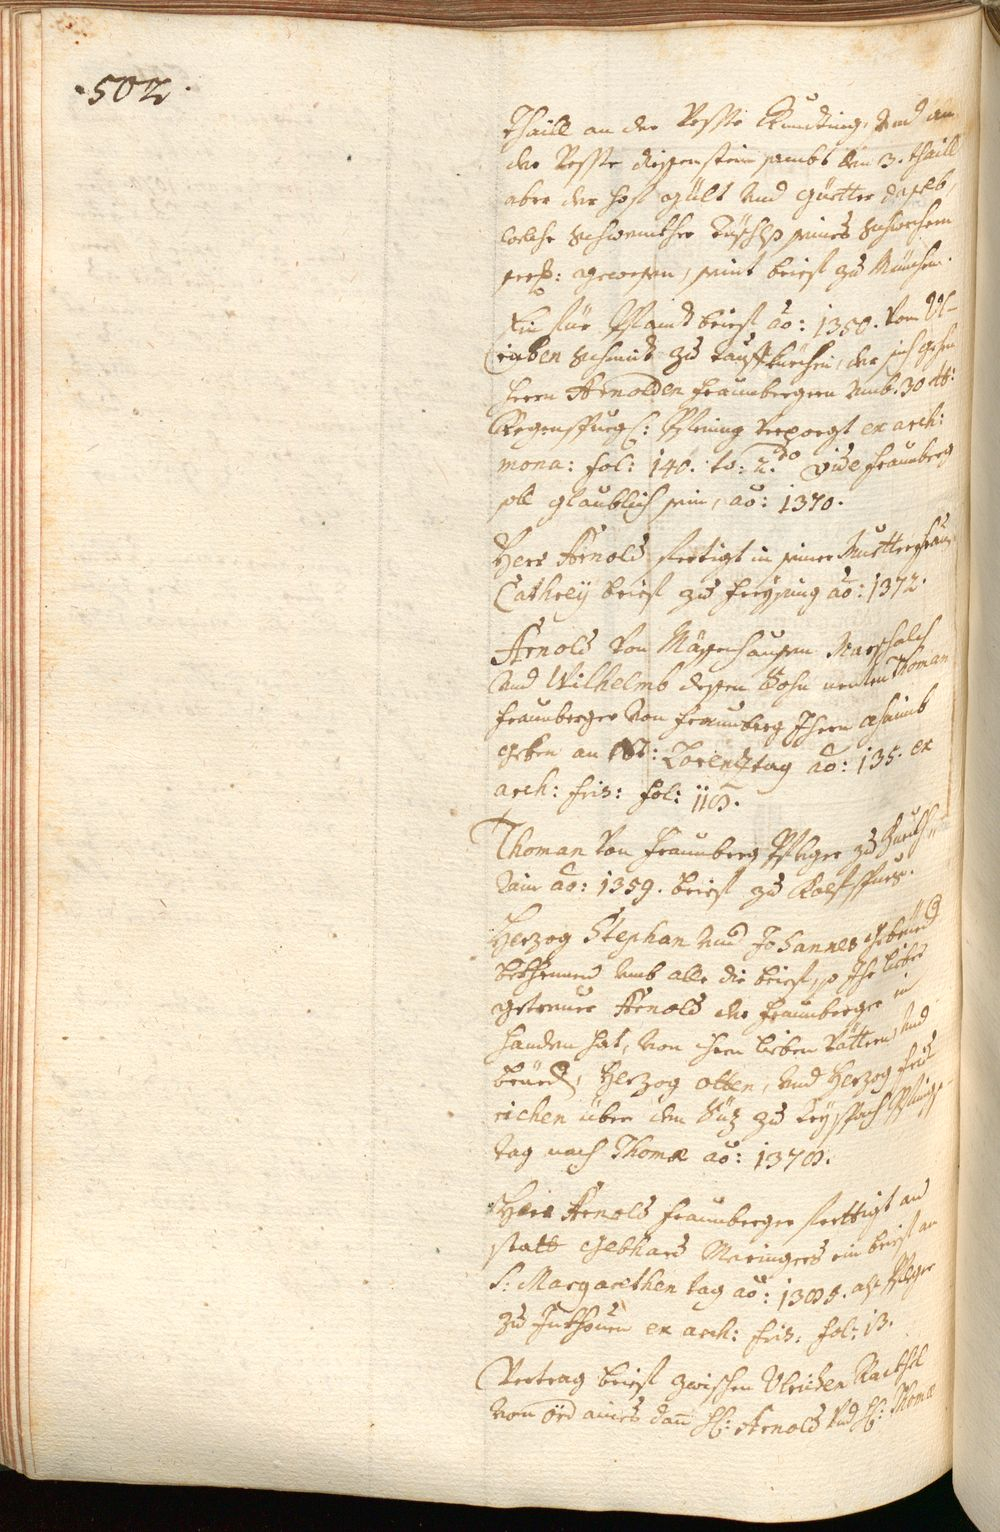 502.
thaill an der Vesste Kundting, und an
der Vesste diessenstein sambt dem 3. thaill
aber der hof gült und güetter daselb,
welche Schweickher Tuschl seines Schwehern
seel: gewesen, seint brief zu München.
Ein für Pfandt brief ao: 1350. vom Ul-
richen Schmidt zu Tauffkürchen, der sich gehen
herrn Arnolden fraunbergern umb. 30 lb:
Regenspurg: Pfening verporgt ex arch:
mona: fol: 140. to: 2.do vide fraunberg
soll glaublich sein, ao: 1370.
Herr Arnold fertigt in seiner Muetter frauen
Cathrey brief zu freysing ao: 1372.
Arnold von Mässenhausen Marschalch
und Wilhelmb dessen Sohn nenten Thoman
fraunberger von fraunberg Ihren ohaimb
geben an St: Lorenztag ao: 135. ex
arch: fris: fol: 118.
Thoman von fraunberg Pfleger zu
rain ao: 1359. brief zu
Herzog Stephan und Johannes gebrüed
bekhennen umb alle die brief, so Ihr lieber
getreuer Arnold der fraunberger in
handen hat, von Ihren lieben Vättern, und
brüed, Herzog Otten, und Herzog frid
richen über den Süz zu Reyspach Pfinz
tag nach Thomæ ao: 1378.
Herr Arnold fraunberger ferttigt an
statt Gebhard ein brief an
S: Margarethen tag ao: 1385. als Pfleger
zu ex arch: fris: fol: 13.
Vertrag brief zwischen Ulrichen
von Örd aines dan H: Arnold und H: Thomæ